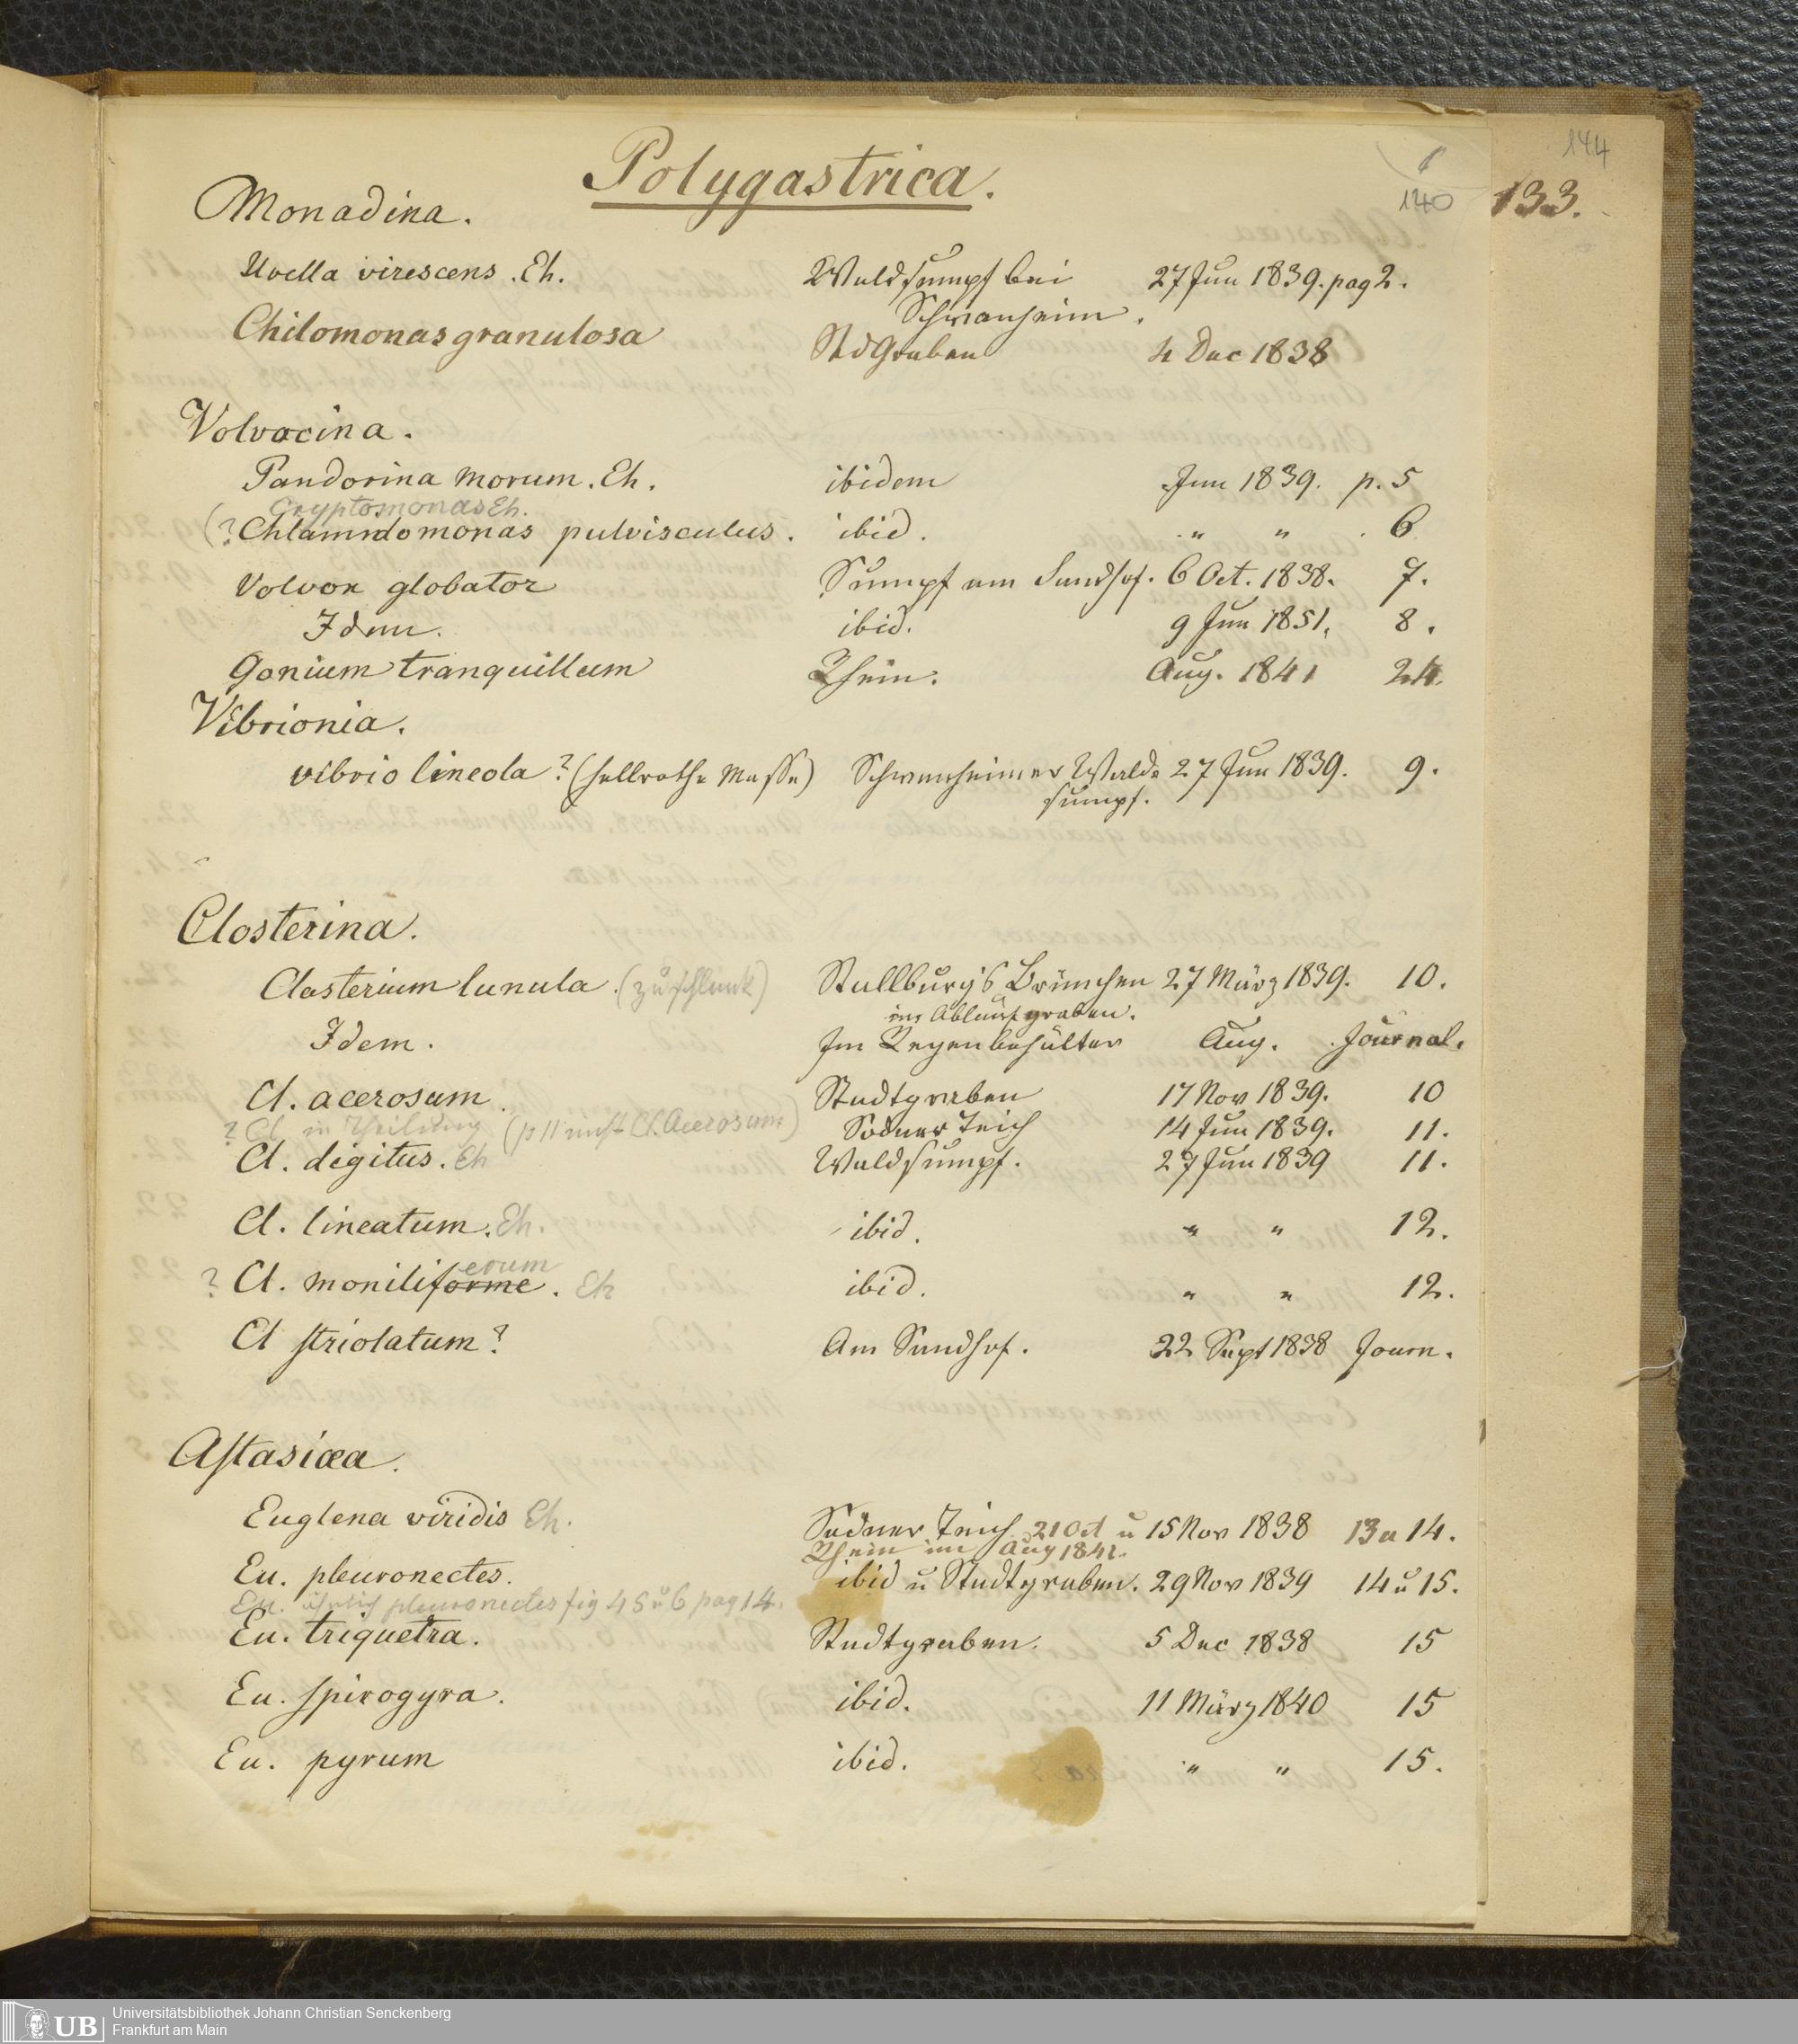 144
140
133.
Polygastrica.
Monadina.
Uvella virescens. Eh. Waldsumpf bei 27 Jun 1839. pag 2.
Schwanheim.
Chilomonas granulosa StdGraben 4 Dec 1838
Volvocina.
Pandorina morum. Eh. ibidem Jun 1839. p. 5
Cryptomonas Eh.
(? Chlamndomonas pulvisculus. ibid. " " 6
Volvox globator Sumpf am Sandhof. 6 Oct. 1838. 7.
Idem. ibid. 9 Jun 1851. 8.
Gonium tranquillum Rhein. Aug. 1841 24.
Vibrionia.
vibrio lineola? (hellrothe Masse) Schwanheimer Wald= 27 Jun 1839. 9.
sumpf.
Closterina.
Closterium lunula. (zu schlank) Stallburg's Brünnchen 27 März 1839. 10.
im Ablaufgraben.
Idem. Im Regenbehälter Aug. Journal.
Cl. acerosum. Stadtgraben 17 Nov 1839. 10
? Cl. in Theilung (p 11 nicht Cl. Acerosum) Sodner Teich 14 Jun 1839. 11.
Cl. digitus. Eh Waldsumpf. 27 Jun 1839 11.
Cl. lineatum. Eh. ibid. " " 12.
erum
? Cl. moniliforme. Eh ibid. " " 12.
Cl striolatum? Am Sandhof. 22 Sept 1838 Journ.
Astasiæa.
Euglena viridis Eh. Sodner Teich 21 Oct u 15 Nov 1838 13 u 14.
Rhein im Aug 1841.
Eu. pleuronectes. ibid u Stadtgraben. 29 Nov 1839 14 u 15.
Eu. ähnlich pleuronectes fig 4 5 u 6 pag 14.
Eu. triquetra. Stadtgraben. 5 Dec 1838 15
Eu. spirogyra. ibid. 11 März 1840 15
Eu. pyrum ibid. " " 15.
UB Universitätsbibliothek Johann Christian Senckenberg
Frankfurt am Main